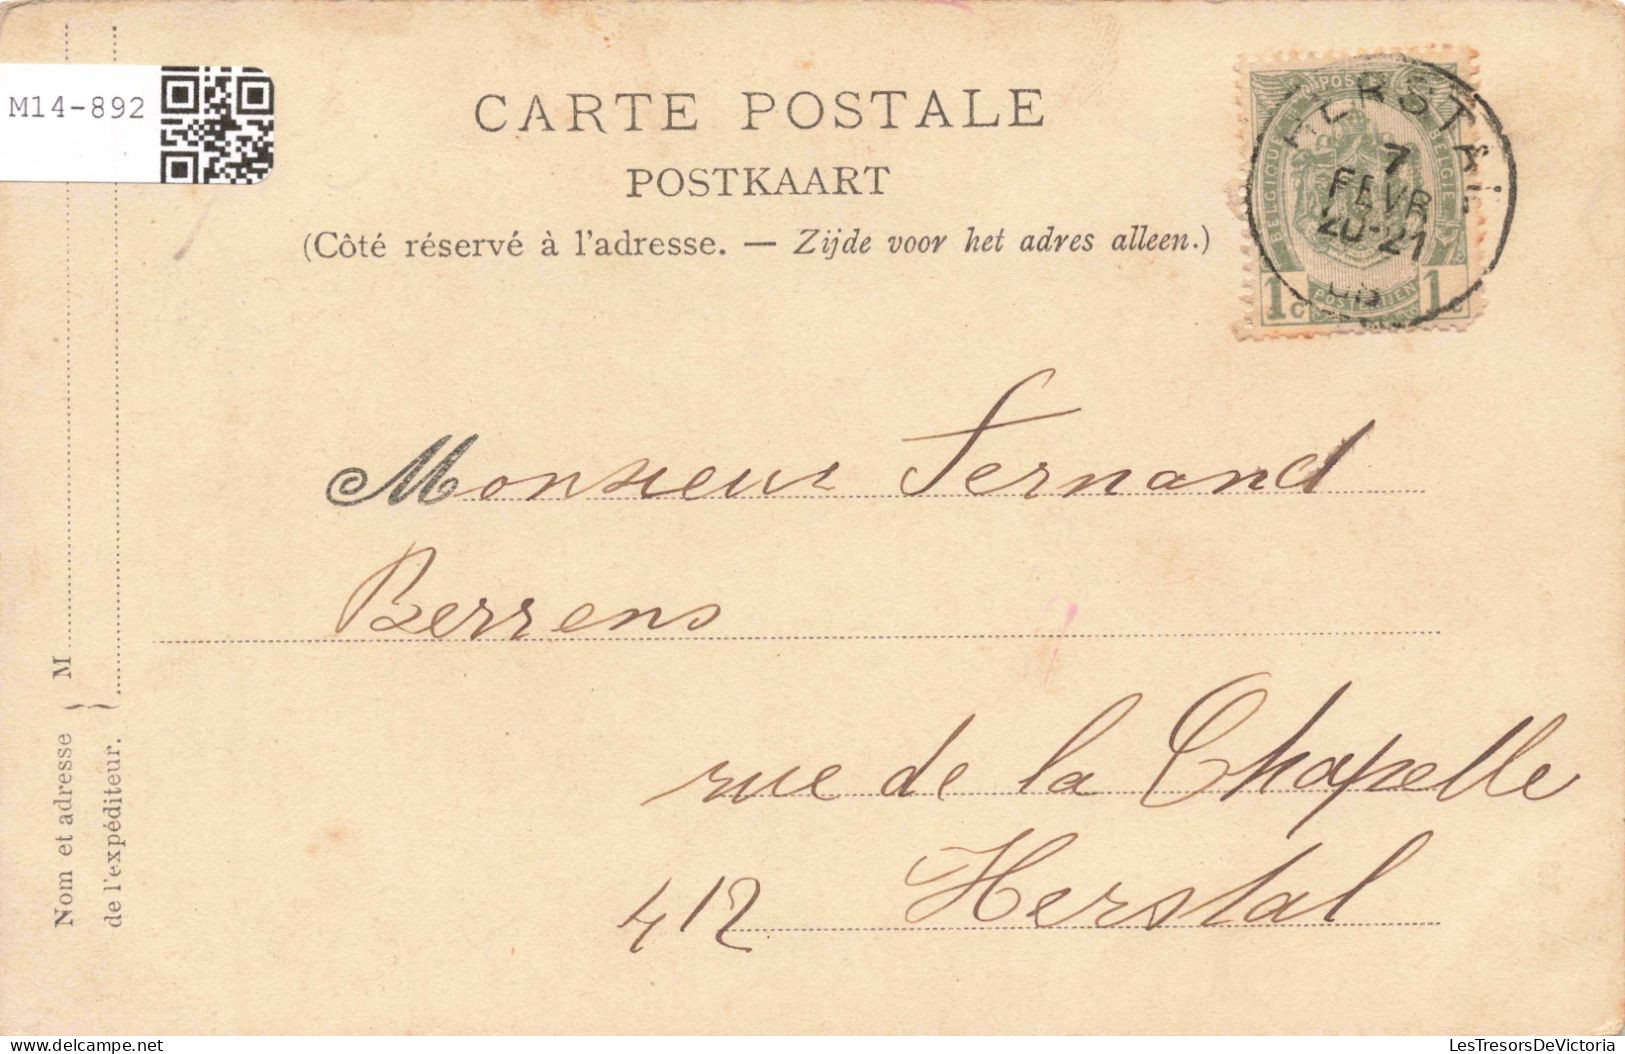 M14-892
CARTE POSTALE
POSTKAART
(Côté réservé à l'adresse. — Zijde voor het adres alleen.)
HERSTAL
7
FEVR
20-21
POSTES
BELGIQUE
BELGIE
POSTERIJEN
1c 1c
Monsieur Fernand
Berrens
rue de la Chapelle
412 Herstal
Nom et adresse } M
de l'expéditeur.
delcampe.net
LesTresorsDeVictoria